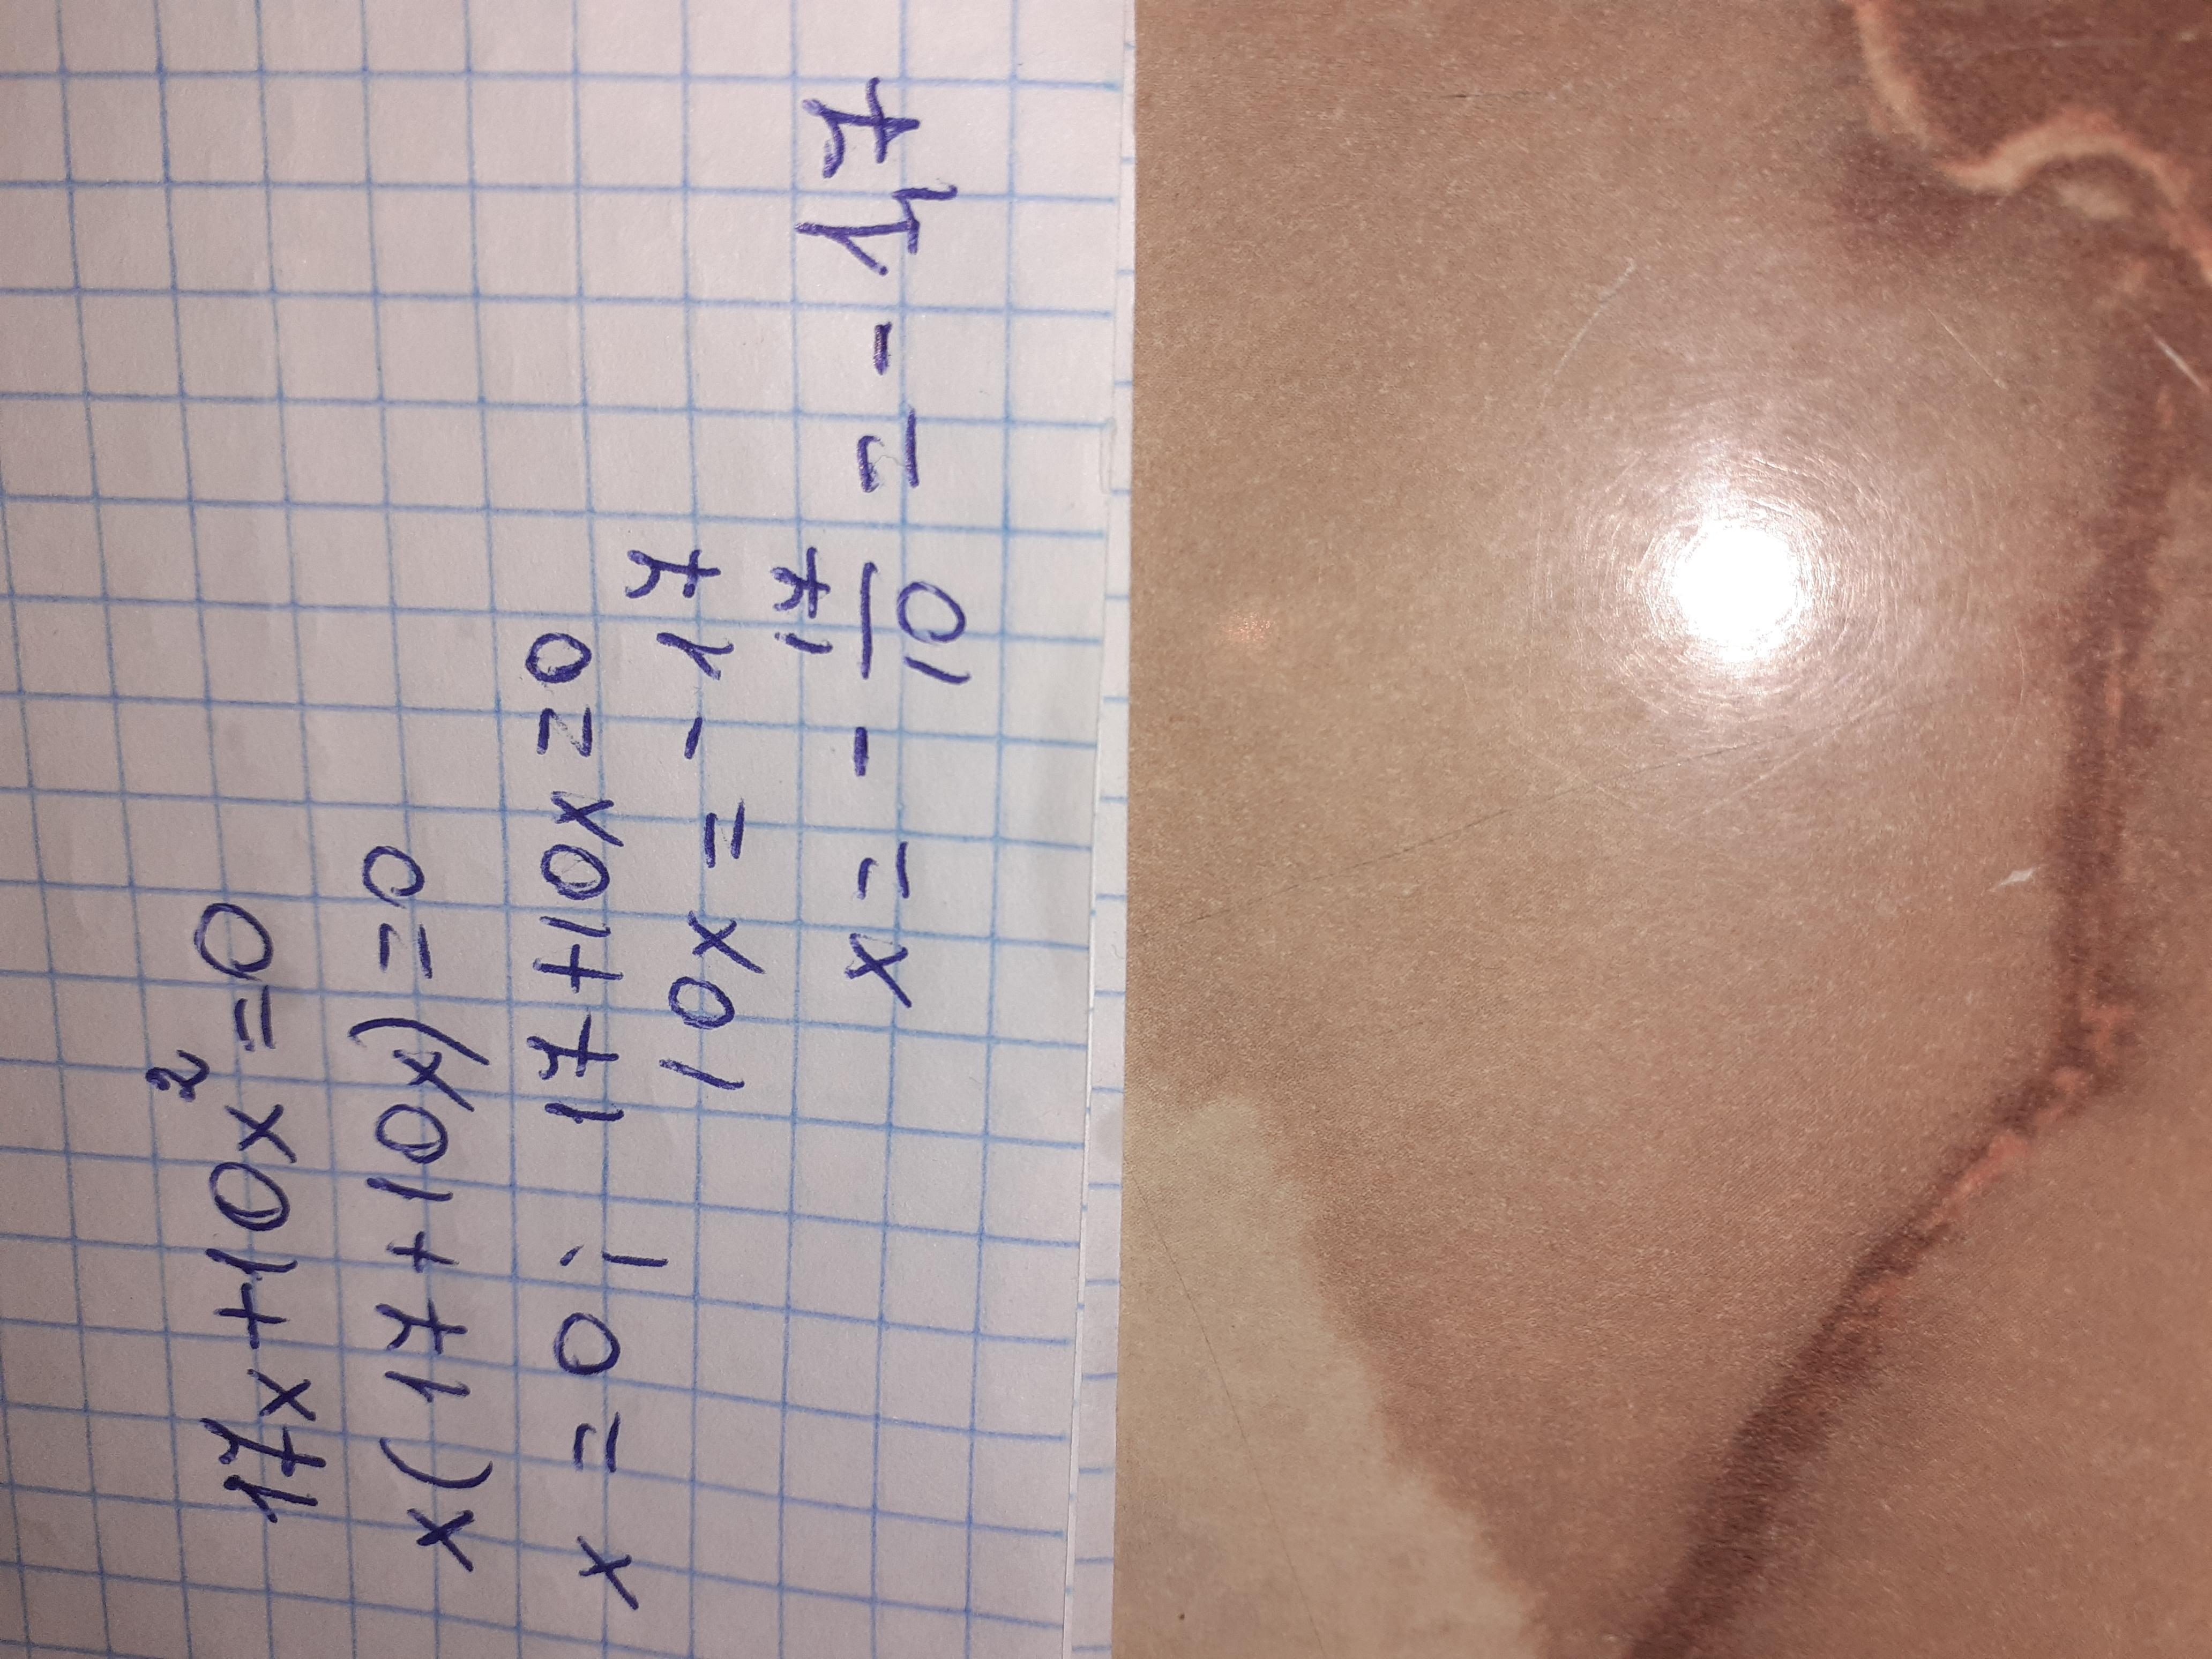 17x+10x²=0
x(17+10x)=0
x=0 i 17+10x=0
10x=-17
x=-17/10=-1,7